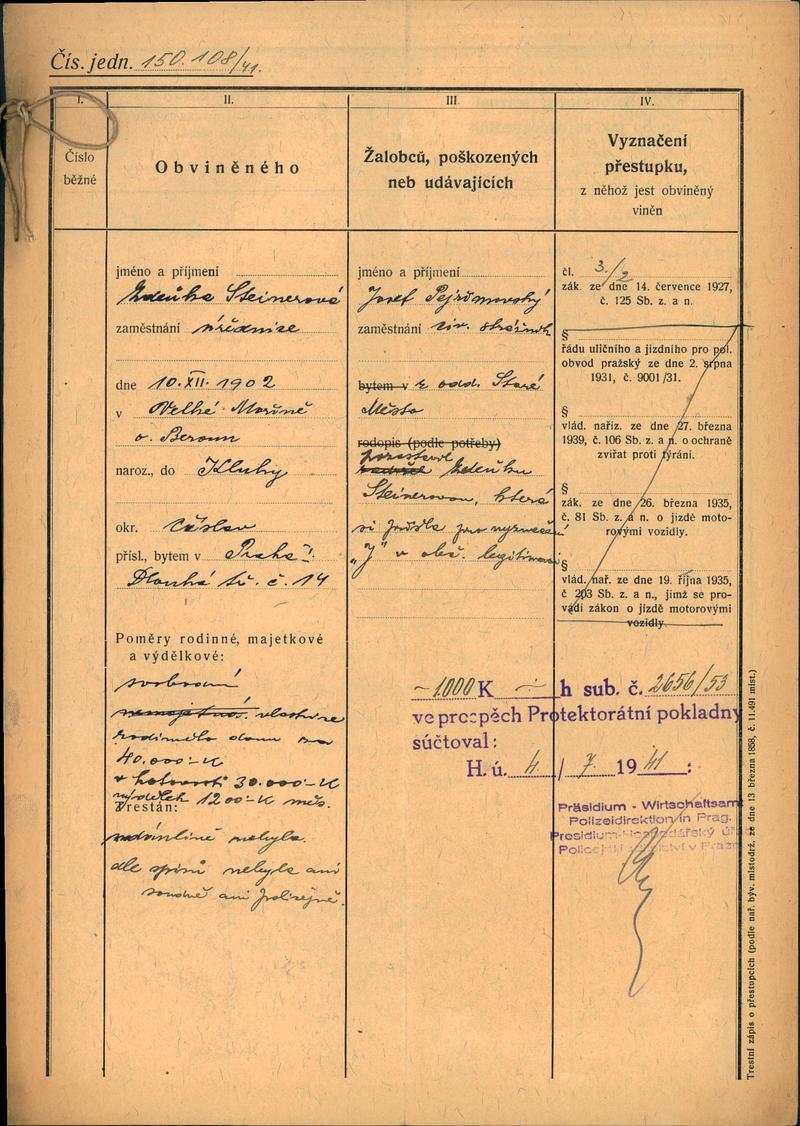 Čís. jedn. 150.108/41.
I.
Číslo
běžné
II.
Obviněného
III.
Žalobců, poškozených
neb udávajících
IV.
Vyznačení
přestupku,
z něhož jest obviněný
viněn
jméno a příjmení
Zdeňka Steinerová
zaměstnání úřednice
dne 10. XII. 1902
v Velké Mořině
o. Beroun
naroz., do Kluky
okr. Čáslav
přísl., bytem v Praha I.
Dlouhá tř. č. 14
Poměry rodinné, majetkové
a výdělkové:
svobodná
nemajetná. vlastnice
rodinného domu za
40.000.- K
v hotovosti 30.000.- K
výdělek 1200.- K měs.
Trestán:
nebyla.
dle spisů nebyla ani
soudně ani policejně.
jméno a příjmení
Josef
zaměstnání civ. strážník
bytem v z odd. Staré
Město
rodopis (podle potřeby)
Zdeňku
Steinerovou, která
si přišla pro vyznačení
„J" v obč. legitimaci
čl. 3./2
zák. ze dne 14. července 1927,
č. 125 Sb. z. a n.
§
řádu uličního a jízdního pro pol.
obvod pražský ze dne 2. srpna
1931, č. 9001/31.
§
vlád. naříz. ze dne 27. března
1939, č. 106 Sb. z. a n. o ochraně
zvířat proti týrání.
§
zák. ze dne 26. března 1935,
č. 81 Sb. z. a n. o jízdě moto-
rovými vozidly.
§
vlád. nař. ze dne 19. října 1935,
č 203 Sb. z. a n., jímž se pro-
vádí zákon o jízdě motorovými
vozidly
1000 K h sub. č. 2656/53
ve prospěch Protektorátní pokladny
súčtoval:
H. ú. 4 / 7. 1941 :
Präsidium - Wirtschaftsamt
Polizeidirektion in Prag.
Presidium-Hospodářský úřad
Policejní ředitelství v Praze
Trestní zápis o přestupcích (podle nař. býv. místodrž. ze dne 13 března 1858, č. 11.491 míst.)